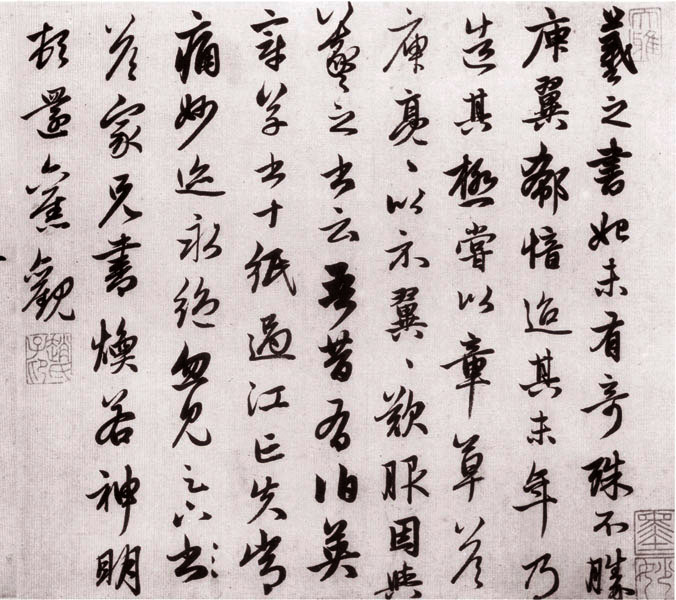 羲之書始未有奇殊不勝
庾翼郗愔迨其末年乃
造其極嘗以章草答
庾亮〻以示翼〻歎服因與
羲之書云吾昔有伯英
章草書十紙過江亡失常
痛妙迹永絕忽見足下書
答家兄書煥若神明
頓還舊觀
大雅
趙氏子昂
墨妙